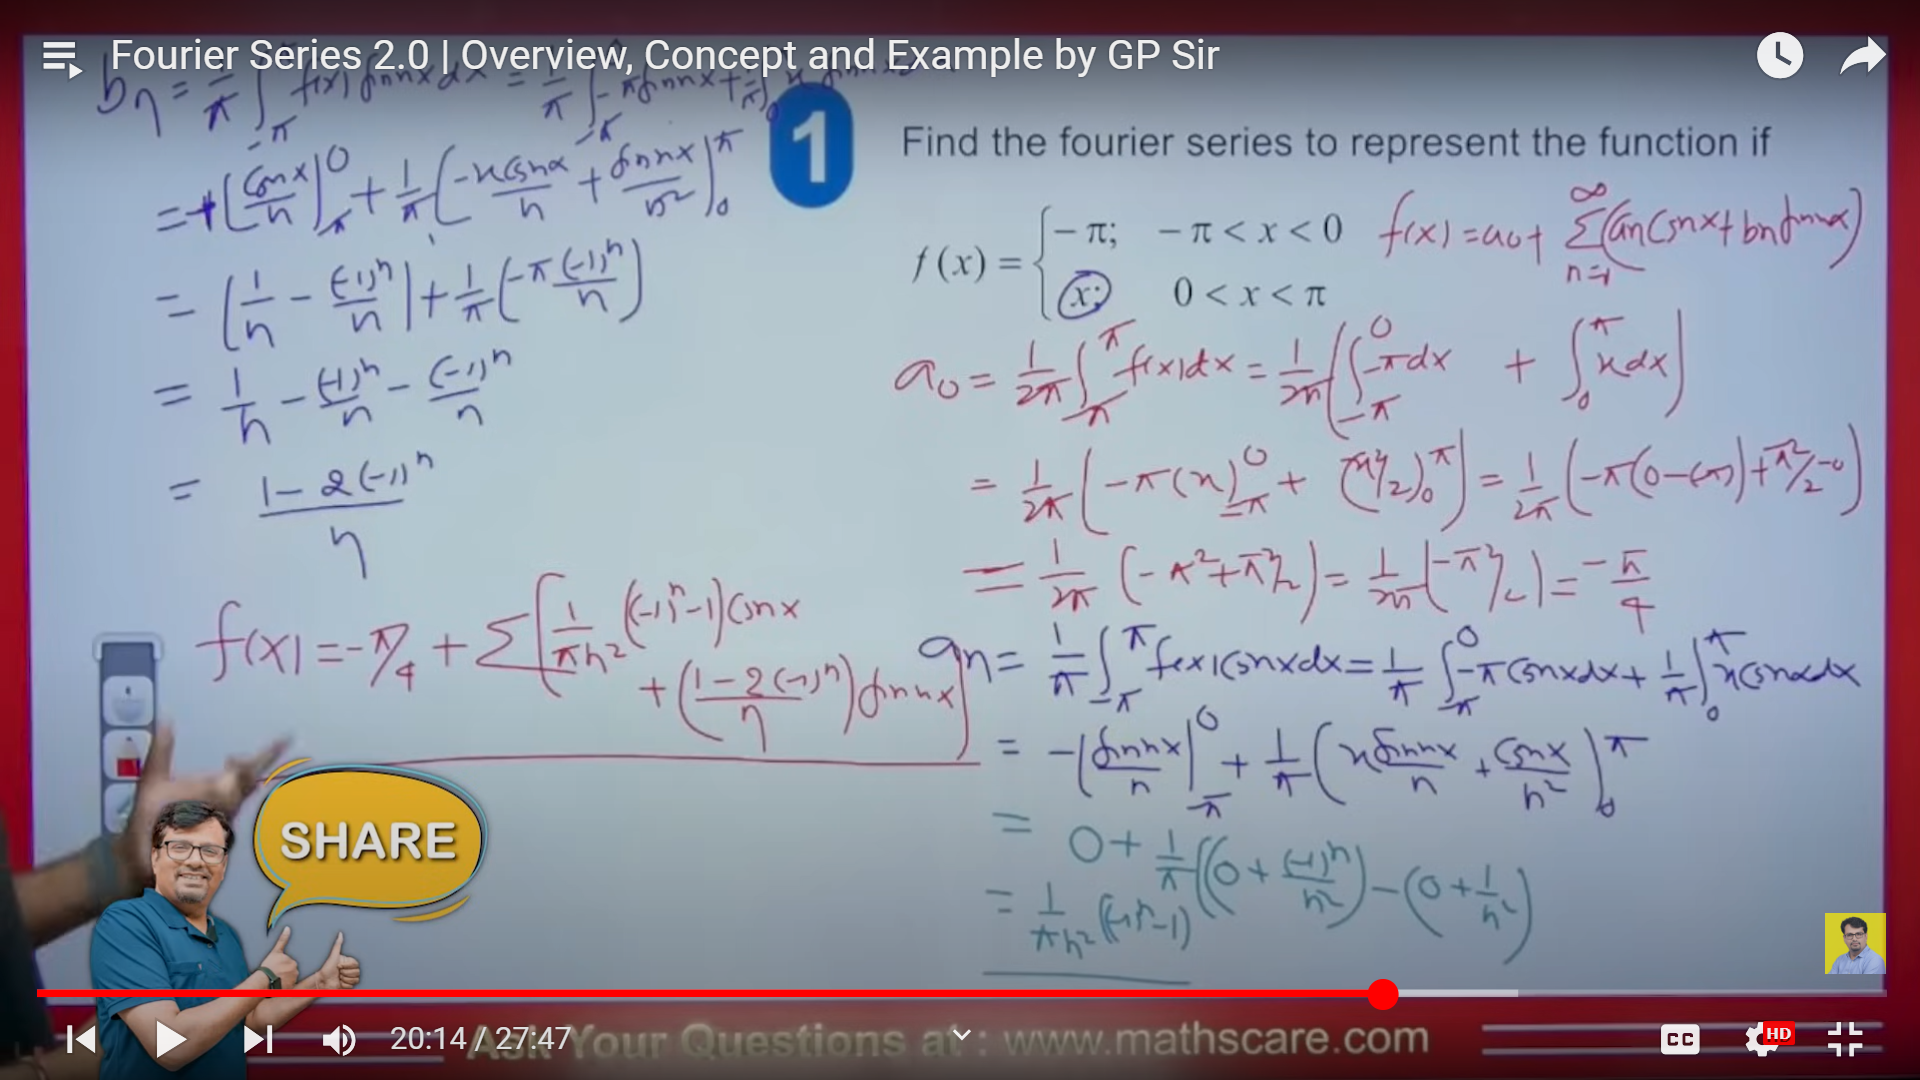 Fourier Series 2.0 | Overview, Concept and Example by GP Sir
bn = 1/π ∫_{-π} f(x) sin nx dx = 1/π ∫_{-π} -π sin nx + 1/π ∫_0 x sin nx
= +[cos nx/n]_{-π}^0 + 1/π (-x cos nx/n + sin nx/n²)_0^π
= [1/n - (-1)^n/n] + 1/π (-π (-1)^n/n)
= 1/n - (-1)^n/n - (-1)^n/n
= 1 - 2(-1)^n / n
f(x) = -π/4 + Σ [1/πn² ((-1)^n - 1) cos nx
+ (1 - 2(-1)^n / n) sin nx]
1
Find the fourier series to represent the function if
f (x) = { - π; - π < x < 0
x; 0 < x < π
f(x) = a0 + Σ_{n=1}^∞ (an cos nx + bn sin nx)
a0 = 1/2π ∫_{-π}^π f(x) dx = 1/2π [∫_{-π}^0 -π dx + ∫_0^π x dx]
= 1/2π [-π(x)_{-π}^0 + (x²/2)_0^π] = 1/2π (-π(0-(-π)) + π²/2 - 0)
= 1/2π (-π² + π²/2) = 1/2π (-π²/2) = -π/4
an = 1/π ∫_{-π}^π f(x) cos nx dx = 1/π ∫_{-π}^0 -π cos nx dx + 1/π ∫_0^π x cos nx dx
= -[sin nx/n]_{-π}^0 + 1/π (x sin nx/n + cos nx/n²)_0^π
= 0 + 1/π ((0 + (-1)^n/n²) - (0 + 1/n²))
= 1/πn² ((-1)^n - 1)
SHARE
20:14 / 27:47
Ask Your Questions at : www.mathscare.com
CC
HD